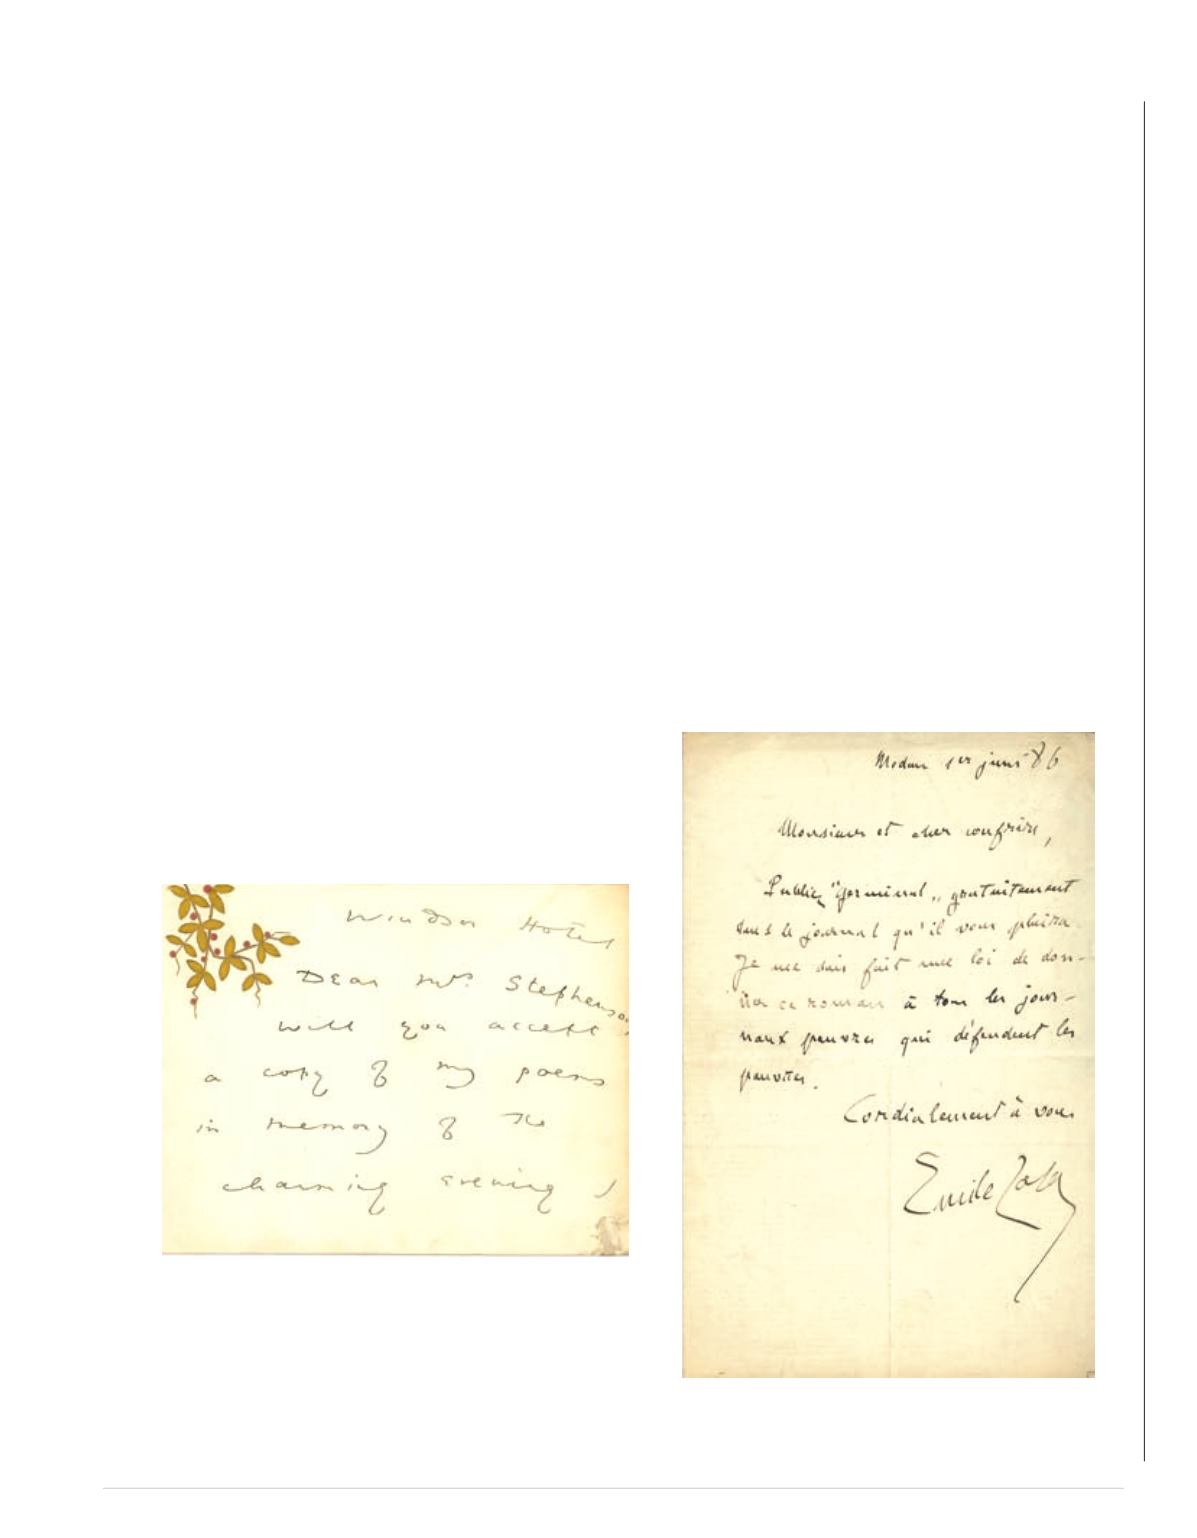 Windsor Hotel
Dear Mrs. Stephenson,
will you accept
a copy of my poems
in memory of the
charming evening I
Medan 1er juin 86
Monsieur et cher confrère,
Publiez "Germinal" gratuitement
dans le journal qu'il vous plaira.
Je me suis fait une loi de don-
ner ce roman à tous les jour-
naux pauvres qui défendent les
pauvres.
Cordialement à vous
Emile Zola